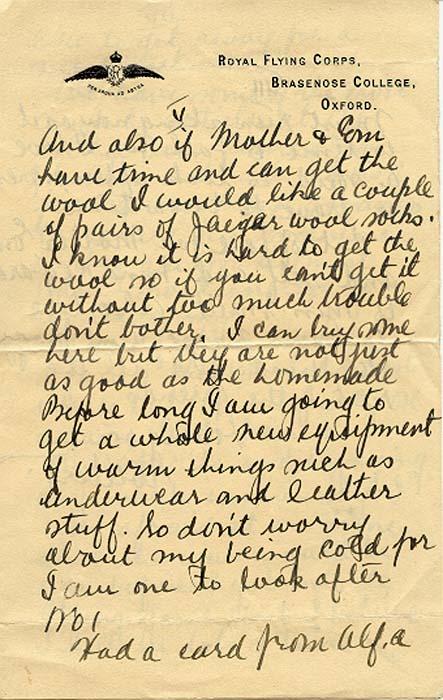 ROYAL FLYING CORPS,
BRASENOSE COLLEGE,
OXFORD.
PER ARDUA AD ASTRA
V
And also if Mother & Em
have time and can get the
wool I would like a couple
of pairs of Jaegar wool socks.
I know it is hard to get the
wool so if you can't get it
without too much trouble
don't bother. I can buy some
here but they are not just
as good as the homemade
Before long I am going to
get a whole new equipment
of warm things such as
underwear and leather
stuff. So don't worry
about my being cold for
I am one to look after
No 1
Had a card from Alf. a